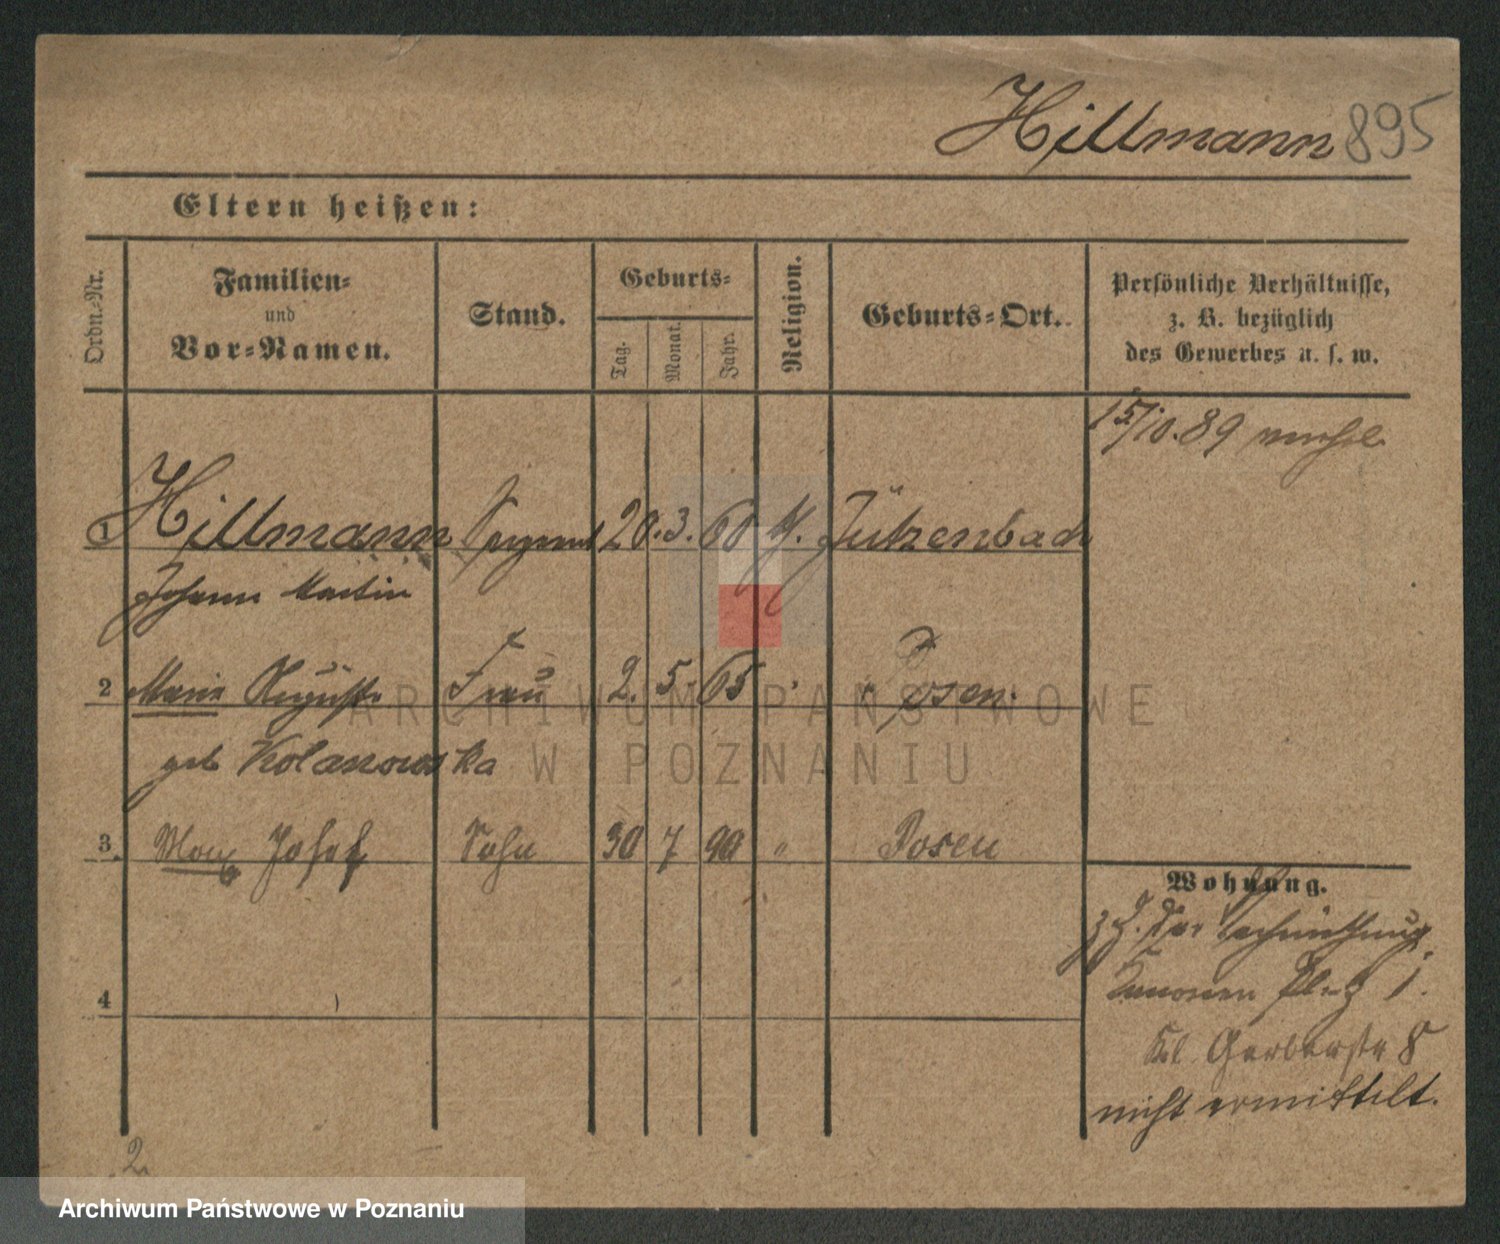 Hillmann 895
Eltern heißen:
Ordn.-Nr.
Familien-
und
Vor-Namen.
Stand.
Geburts-
Tag.
Monat.
Jahr.
Religion.
Geburts-Ort.
Persönliche Verhältnisse,
z. B. bezüglich
des Gewerbes u. s. w.
15/10.89
1 Hillmann Sergeant 20. 3. 60 Jützenbach
Johann Martin
2 Marie Auguste Frau 2. 5. 65 Posen.
geb Kolanowska
3. Max Josef Sohn 30 7 90 " Posen
Wohnung.
z. Z. der
Kanonen Platz 1.
Kl. Gerberstr 8
nicht ermittelt.
4
2.
ARCHIWUM PAŃSTWOWE
W POZNANIU
Archiwum Państwowe w Poznaniu